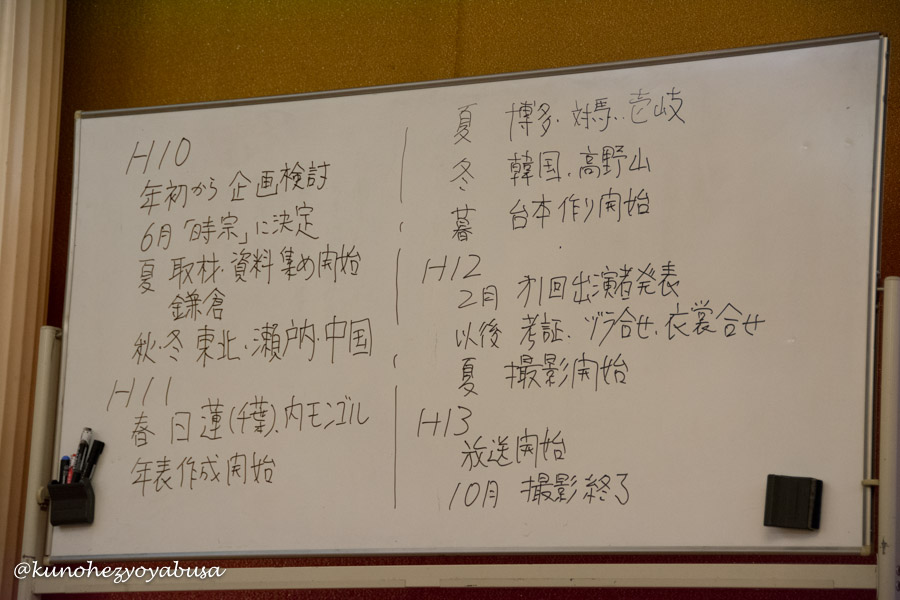 H10
年初から 企画検討
6月「時宗」に決定
夏 取材・資料集め開始
鎌倉
秋・冬 東北・瀬戸内・中国
H11
春 日蓮(千葉)、内モンゴル
年表作成開始
夏 博多・対馬・壱岐
冬 韓国、高野山
暮 台本作り開始
H12
2月 才1回出演者発表
以後 考証、ヅラ合せ、衣裳合せ
夏 撮影開始
H13
放送開始
10月 撮影終了
@kunohezyoyabusa